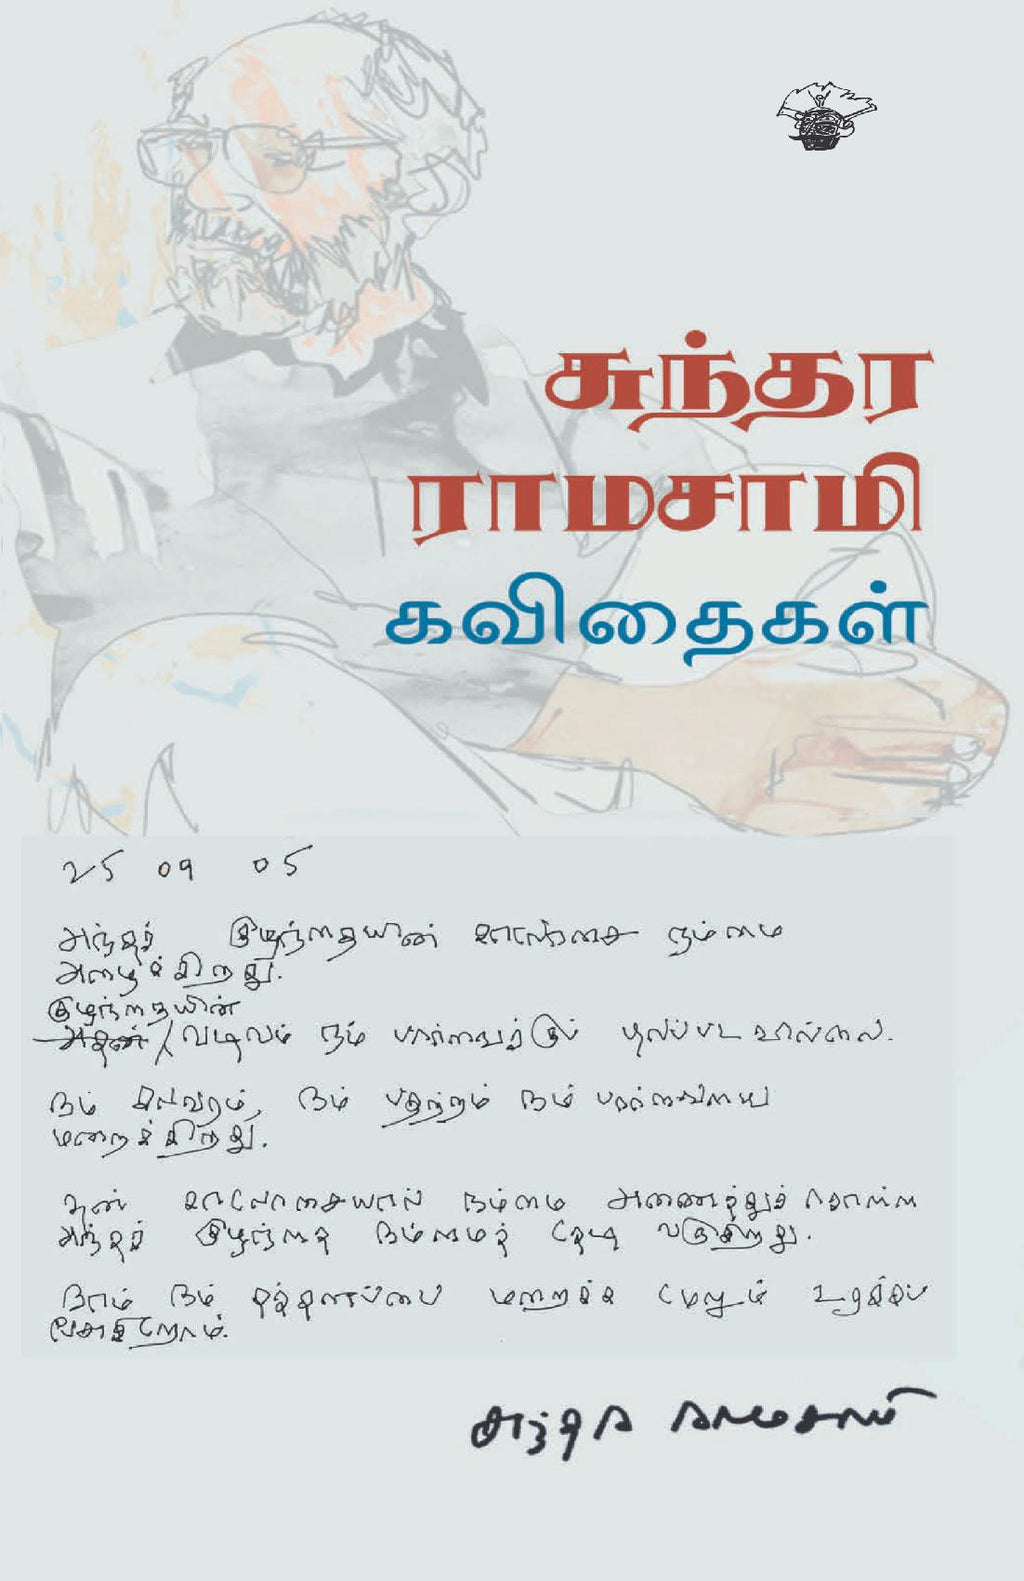 சுந்தர
ராமசாமி
கவிதைகள்
25 09 05
அந்தக் குழந்தையின் காலோசை நம்மை
அழைக்கிறது.
குழந்தையின்
அதன் / வடிவம் நம் பார்வைக்குப் புலப்படவில்லை.
நம் கலவரம், நம் பதற்றம் நம் பார்வையை
மறைக்கிறது.
தன் காலோசையால் நம்மை அணைத்துக் கொள்ள
அந்தக் குழந்தை நம்மைத் தேடி வருகிறது.
நாம் நம் தத்தளிப்பை மறைக்க மேலும் உரக்கப்
பேசுகிறோம்.
சுந்தர ராமசாமி